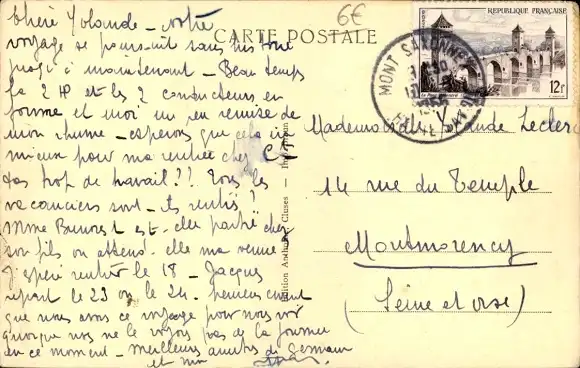 Chère Yolande - notre
voyage se poursuit sans histoire
jusqu'à maintenant - Beau temps
la 2 HP et les 2 conducteurs en
forme et moi un peu remise de
mon rhume - esperons que cela ira
mieux pour ma rentrée chez C
pas trop de travail?? Tous les
vacanciers sont-ils rentrés?
Mme est-elle partie chez
son fils ou attend-elle ma venue
J'espère rentrer le 18 - Jacques
repart le 23 ou le 24. heureusement
que nous avons ce voyage pour nous voir
quoique nous ne le voyons pas de la journée
en ce moment - Meilleurs amitiés de Germain
et moi
6€
CARTE POSTALE
RÉPUBLIQUE FRANÇAISE
12f
MONT SAXONNEX
HTE
Edition Cluses
Mademoiselle Yolande Leclerc
14 rue du Temple
Montmorency
(Seine et Oise)